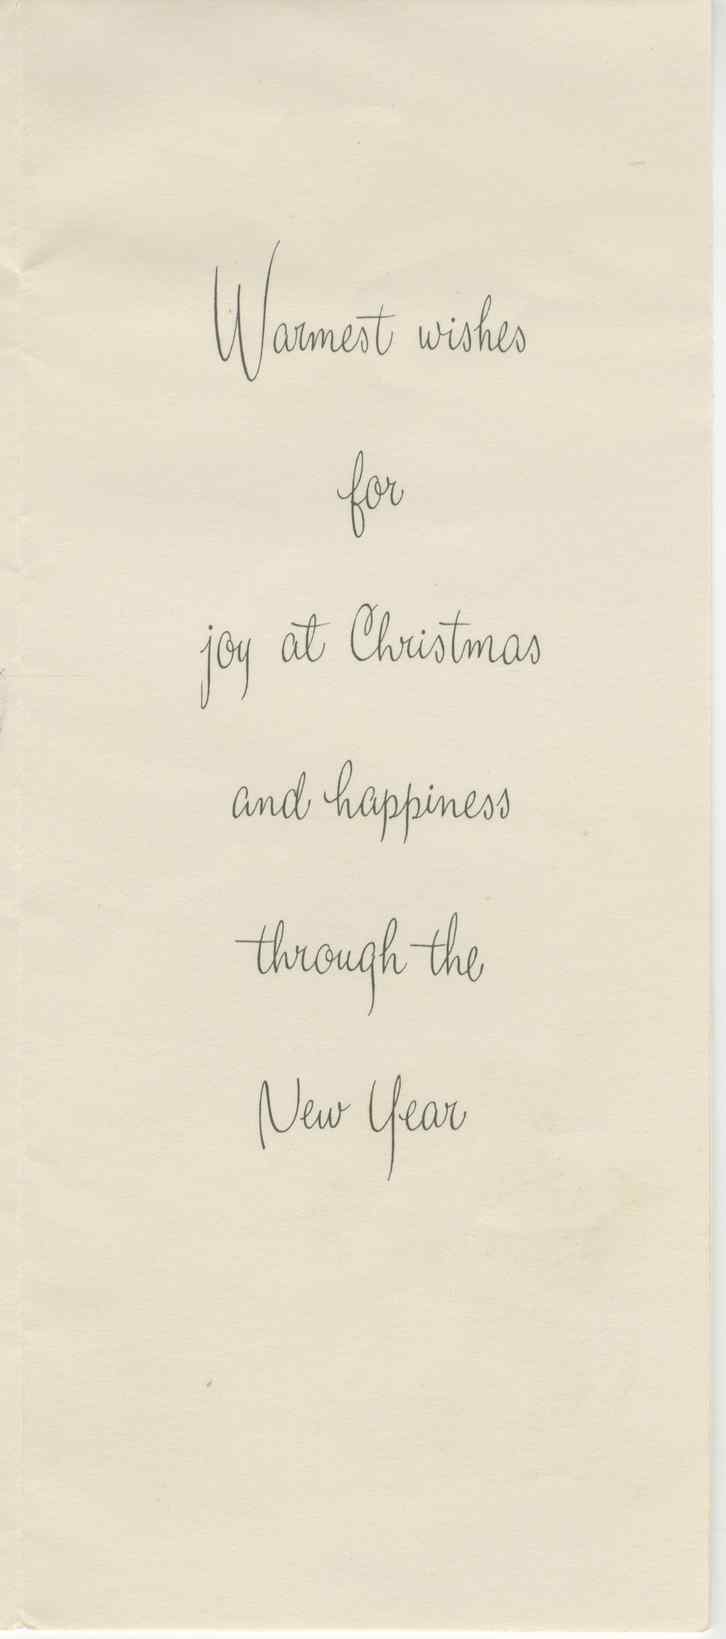 Warmest wishes
for
joy at Christmas
and happiness
through the
New Year